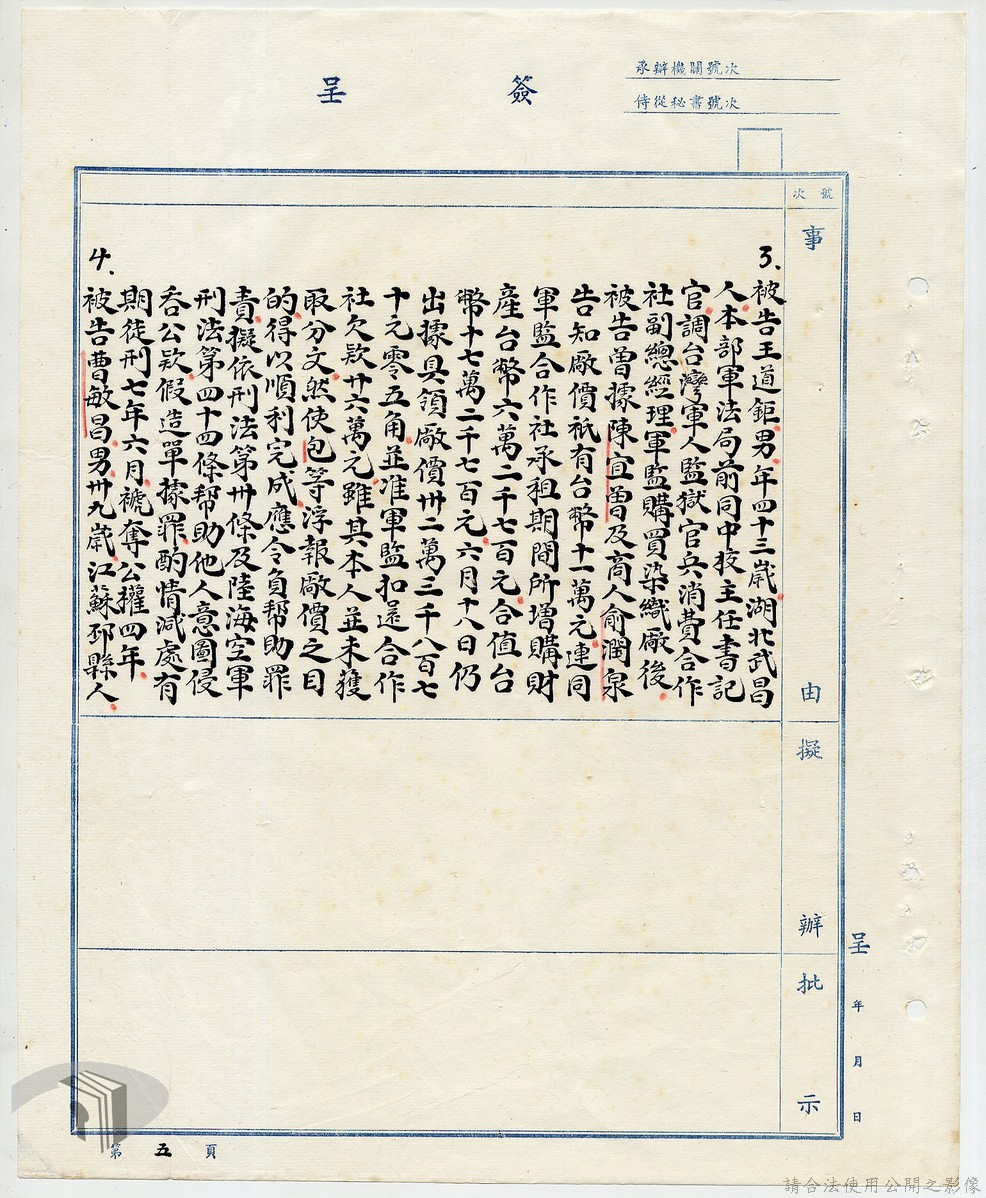 承辦機關號次
侍從秘書號次
簽呈
號次
事由
擬辦
批示
呈 年 月 日
3.
被告王道鉅男年四十三歲湖北武昌
人本部軍法局前同中校主任書記
官調台灣軍人監獄官兵消費合作
社副總經理軍監購買染織廠後
被告曾據陳宜曾及商人俞潤泉
告知廠價祇有台幣十一萬元連同
軍監合作社承租期間所增購財
產台幣六萬二千七百元合值台
幣十七萬二千七百元六月十八日仍
出據具領廠價卅二萬三千八百七
十元零五角並准軍監扣還合作
社欠款廿六萬元雖其本人並未獲
取分文然使包等浮報廠價之目
的得以順利完成應令負帮助罪
責擬依刑法第卅條及陸海空軍
刑法第四十四條帮助他人意圖侵
吞公款假造單據罪酌情減處有
期徒刑七年六月褫奪公權四年
4.
被告曹敏昌男卅九歲江蘇邳縣人
第五頁
請合法使用公開之影像